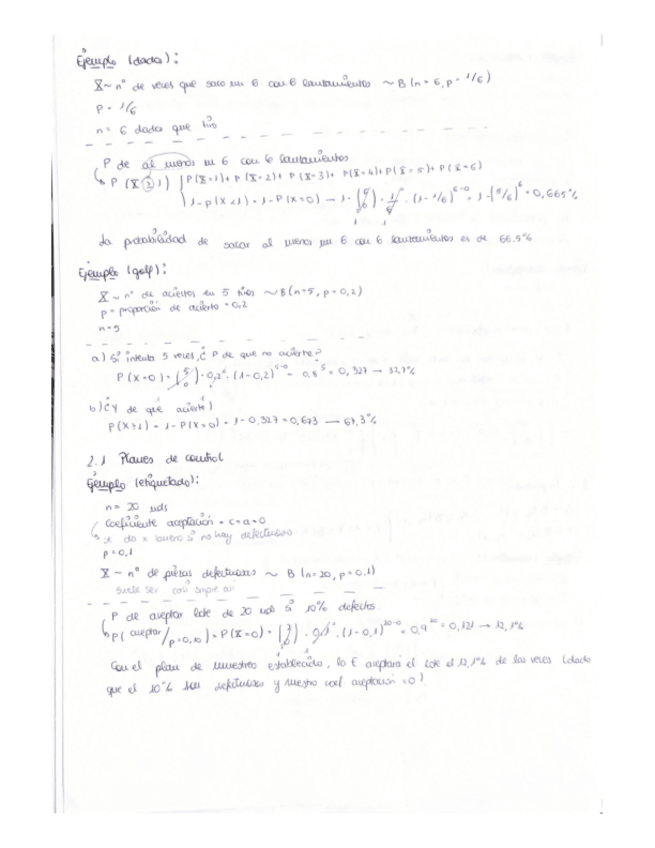 Ejemplo (dados):
X ~ nº de veces que saco un 6 con 6 lanzamientos ~ B (n = 6, p = 1/6)
p = 1/6
n = 6 dados que tiro
P de al menos un 6 con 6 lanzamientos
P (X ≥ 1) { P(X=1) + P(X=2) + P(X=3) + P(X=4) + P(X=5) + P(X=6)
1 - p(X<1) = 1 - P(X=0) = 1 - (6 0) · 1/6⁰ · (1 - 1/6)^6-0 = 1 - (5/6)^6 = 0,665%
La probabilidad de sacar al menos un 6 con 6 lanzamientos es de 66.5%
Ejemplo (golf):
X ~ nº de aciertos en 5 tiros ~ B(n=5, p=0,2)
p = proporción de acierto = 0,2
n=5
a) Si intenta 5 veces, ¿P de que no acierte?
P(X=0) = (5 0) · 0,2⁰ · (1-0,2)^5-0 = 0,8^5 = 0,327 → 32,7%
b) ¿Y de que acierte?
P(X≥1) = 1 - P(X=0) = 1 - 0,327 = 0,673 → 67,3%
2.1 Planes de control
Ejemplo (etiquetado):
n = 20 uds
Coeficiente aceptación = c = a = 0
se da x bueno si no hay defectuoso
p = 0,1
X ~ nº de piezas defectuosas ~ B (n=20, p=0,1)
suele ser
P de aceptar lote de 20 uds si 10% defectos
P( aceptar / p=0,10) = P(X=0) = · 0,1⁰ · (1-0,1)^20-0 = 0,9^20 = 0,121 → 12,1%
Con el plan de muestreo establecido, la E aceptará el lote el 12,1% de las veces (dado
que el 10% son defectuosas y nuestro coef aceptación = 0)